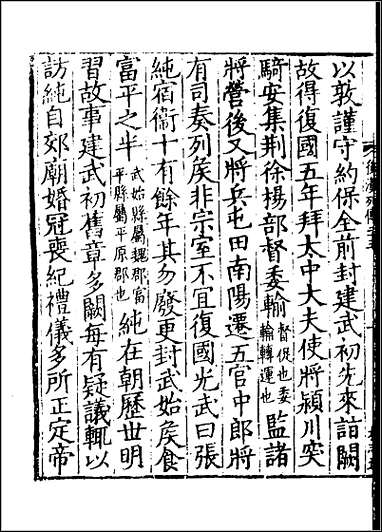 以敦謹守約保全前封建武初先來詣闕
故得復國五年拜太中大夫使將潁川突
騎安集荆徐楊部督委輸督促也委輪轉運也監諸
將營後又將兵屯田南陽遷五官中郎將
有司奏列矦非宗室不宜復國光武曰張
純宿衞十有餘年其勿廢更封武始矦食
富平之半武始縣屬魏郡富平縣屬平原郡也純在朝歷世明
習故事建武初舊章多闕每有疑議輒以
訪純自郊廟婚冠喪紀禮儀多所正定帝